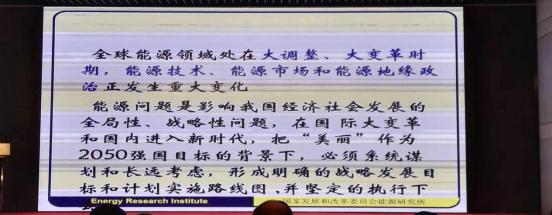 全球能源领域处在大调整、大变革时
期，能源技术、能源市场和能源地缘政
治正发生重大变化
能源问题是影响我国经济社会发展的
全局性、战略性问题，在国际大变革
和国内进入新时代，把“美丽”作为
2050强国目标的背景下，必须系统谋
划和长远考虑，形成明确的战略发展目
标和计划实施路线图，并坚定的执行下
Energy Research Institute
国家发展和改革委员会能源研究所